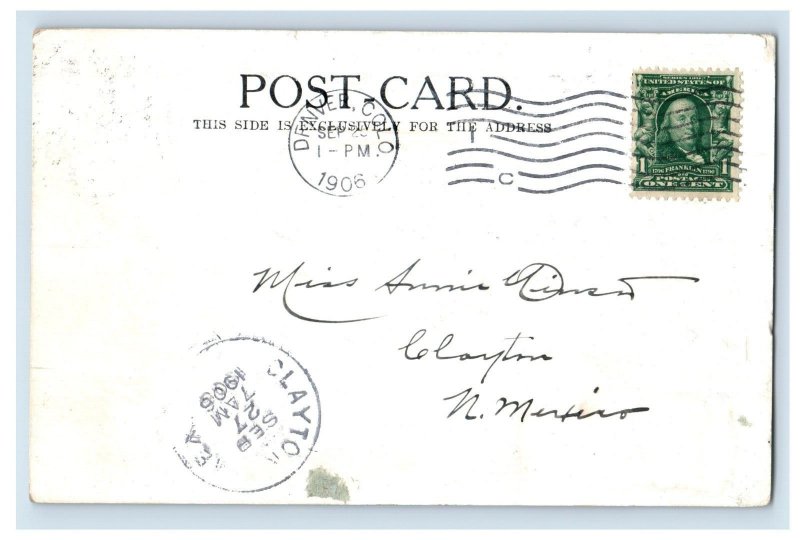 POST CARD.
THIS SIDE IS EXCLUSIVELY FOR THE ADDRESS
DENVER, COLO
SEP 25
1-PM.
1906
1
C
SERIES 1902
UNITED STATES OF
AMERICA
1 FRANKLIN 1
POSTAGE
ONE CENT
Miss Annie
Clayton
N. Mexico
CLAYTON
SEP
27
7 AM
1906